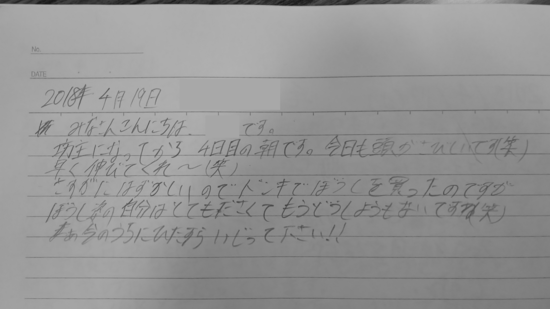 No.
DATE
2018年 4月19日
みなさんこんにちは、 です。
坊主になってから4日目の朝です。今日も頭が ひいです(笑)
早く伸びてくれ〜(笑)
さすがにはずかしいのでドンキでぼうしを買ったのですが
ぼうし の自分はとてもださくてもうどうしようもないです (笑)
まあ今のうちにひたすらいじって下さい!!